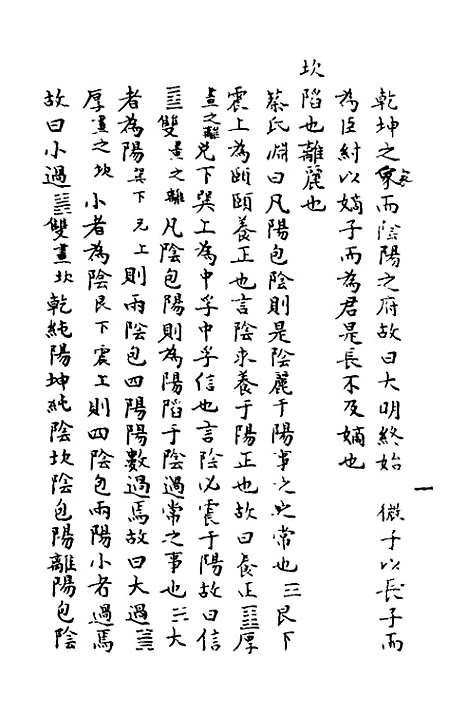 乾坤之象而陰陽之府故曰大明終始　微子以長子而
為臣紂以嫡子而為君是長不及嫡也
坎陷也離麗也
蔡氏淵曰凡陽包陰則是陰麗于陽事之常也☲艮下
震上為頤頤養正也言陰求養于陽正也故曰養正䷚厚
畫之離兌下巽上為中孚中孚信也言陰必震于陽故曰信
䷼雙畫之離凡陰包陽則為陽陷于陰過常之事也☵大
者為陽巽下兌上則兩陰包四陽陽數過焉故曰大過䷛
厚畫之坎小者為陰艮下震上則四陰包兩陽小者過焉
故曰小過䷽雙畫坎乾純陽坤純陰坎陰包陽離陽包陰
一